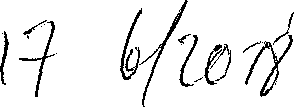 17 6/2018